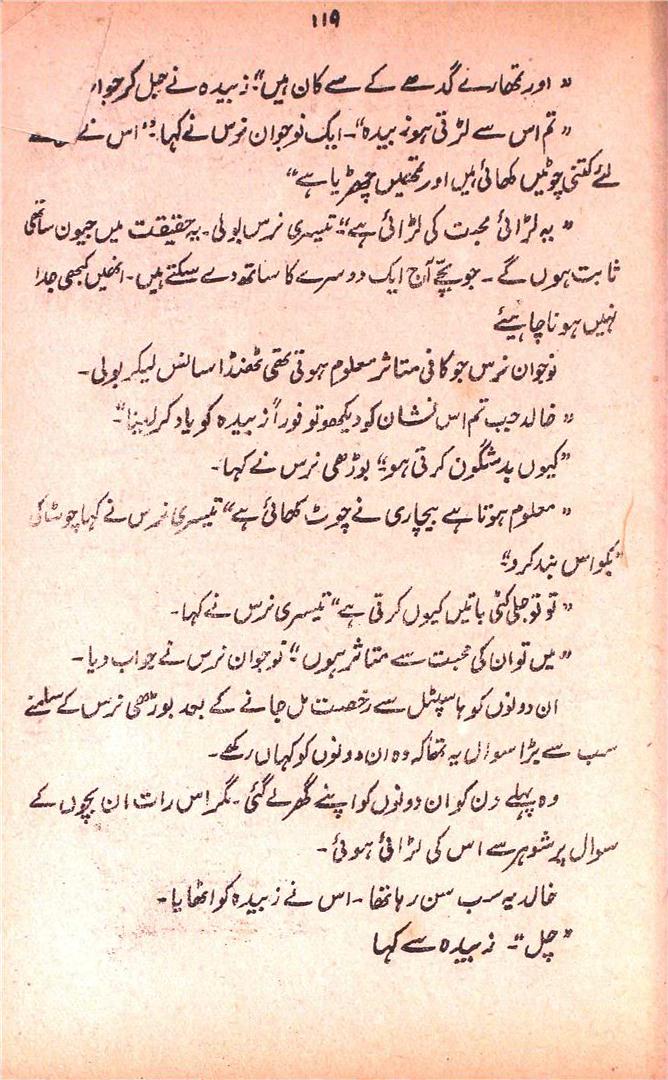 ۱۱۹
" اور تمھارے گدھے کے سے کان ہیں"۔ زبیدہ نے جل کر
" تم اس سے لڑتی ہو زبیدہ"۔ ایک نوجوان نرس نے کہا۔ " اس نے
لئے کتنی چوٹیں کھائی ہیں اور تمھیں چھڑیا ہے"
" یہ لڑائی محبت کی لڑائی ہے"۔ تیسری نرس بولی۔ یہ حقیقت میں جیون ساتھی
ثابت ہوں گے۔ جو بچّے آج ایک دوسرے کا ساتھ دے سکتے ہیں۔ انھیں کبھی جدا
نہیں ہونا چاہیئے
نوجوان نرس جو کافی متاثر معلوم ہوتی تھی ٹھنڈا سانس لیکر بولی۔
" خالد جب تم اس نشان کو دیکھو تو فوراً زبیدہ کو یاد کر لینا"۔
"کیوں بدشگون کرتی ہو"۔ بوڑھی نرس نے کہا۔
" معلوم ہوتا ہے بیچاری نے چوٹ کھائی ہے" تیسری نرس نے کہا
"بکواس بند کرو"۔
" تو تو جلی کٹی باتیں کیوں کرتی ہے" تیسری نرس نے کہا۔
" میں تو ان کی محبت سے متاثر ہوں"۔ نوجوان نرس نے جواب دیا۔
ان دونوں کو ہاسپٹل سے رخصت مل جانے کے بعد بوڑھی نرس کے سامنے
سب سے بڑا سوال یہ تھا کہ وہ ان دونوں کو کہاں رکھے۔
وہ پہلے دن کو ان دونوں کو اپنے گھر لے گئی۔ مگر اس رات ان بچوں کے
سوال پر شوہر سے اس کی لڑائی ہوئی۔
خالد یہ سب سن رہا تھا۔ اس نے زبیدہ کو اٹھایا۔
" چل"۔ زبیدہ سے کہا